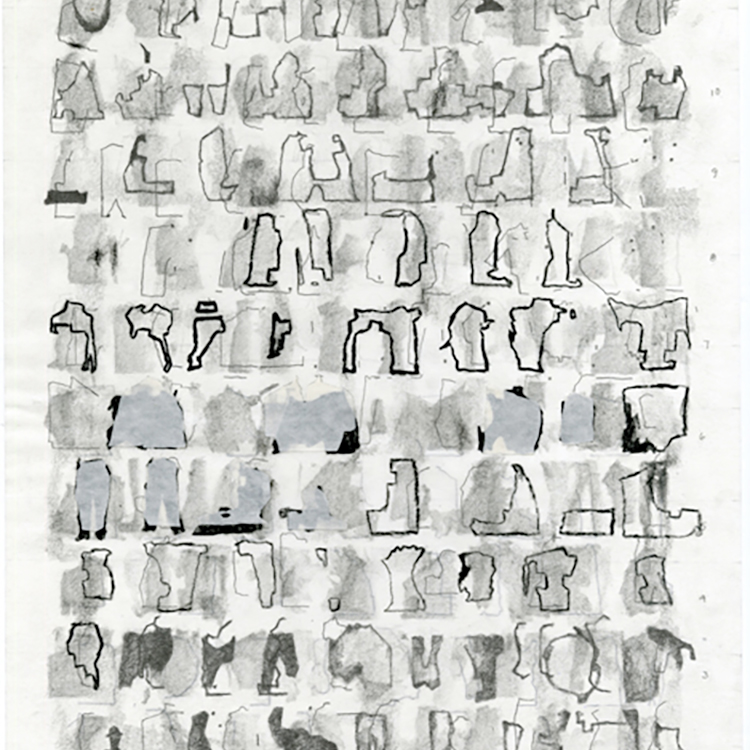 10
9
8
7
6
4
3